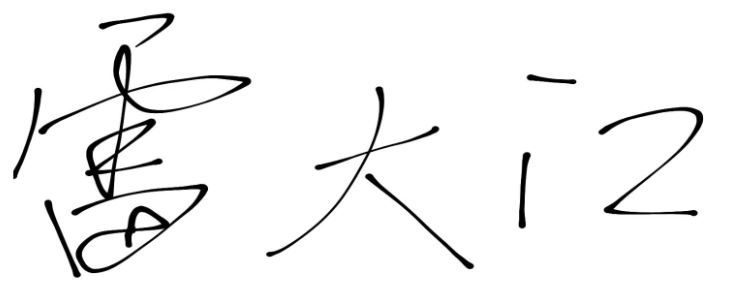 雷大江